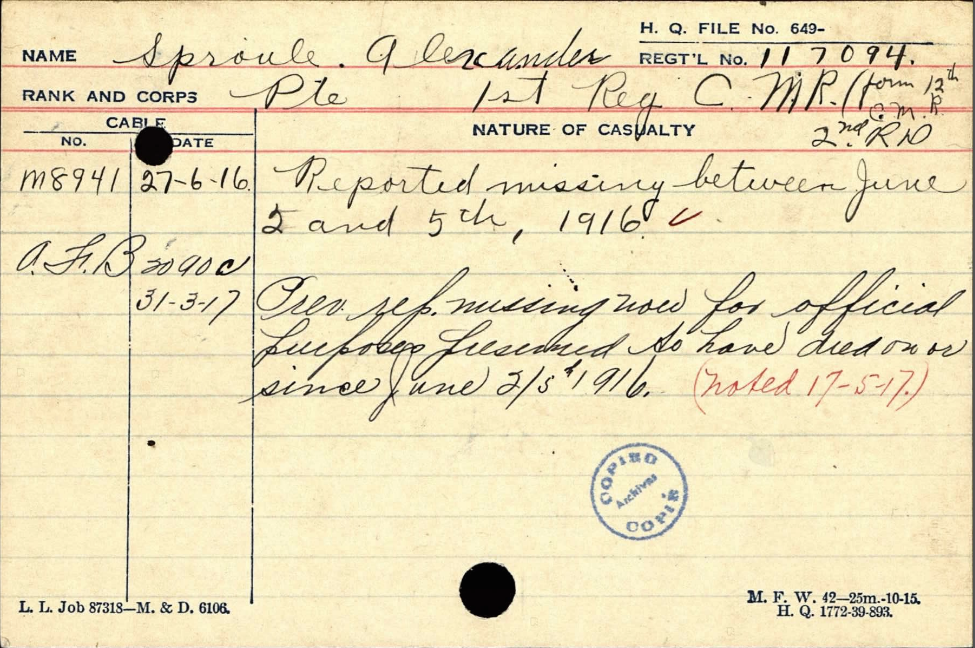 H. Q. FILE No. 649-
NAME Sproule. Alexander REGT'L No. 117094.
RANK AND CORPS Pte 1st Reg C. M.R. (form 12th
C. M. R.
CABLE NATURE OF CASUALTY 2nd. RD
No. DATE
M8941 27-6-16. Reported missing between June
2 and 5th, 1916.
A.F.B 2090c
31-3-17 Prev. rep. missing now for official
purposes presumed to have died on or
since June 2/5th 1916. (noted 17-5-17.)
COPIED
Archives
COPIÉ
L. L. Job 87318—M. & D. 6106. M. F. W. 42—25m.-10-15.
H. Q. 1772-39-893.